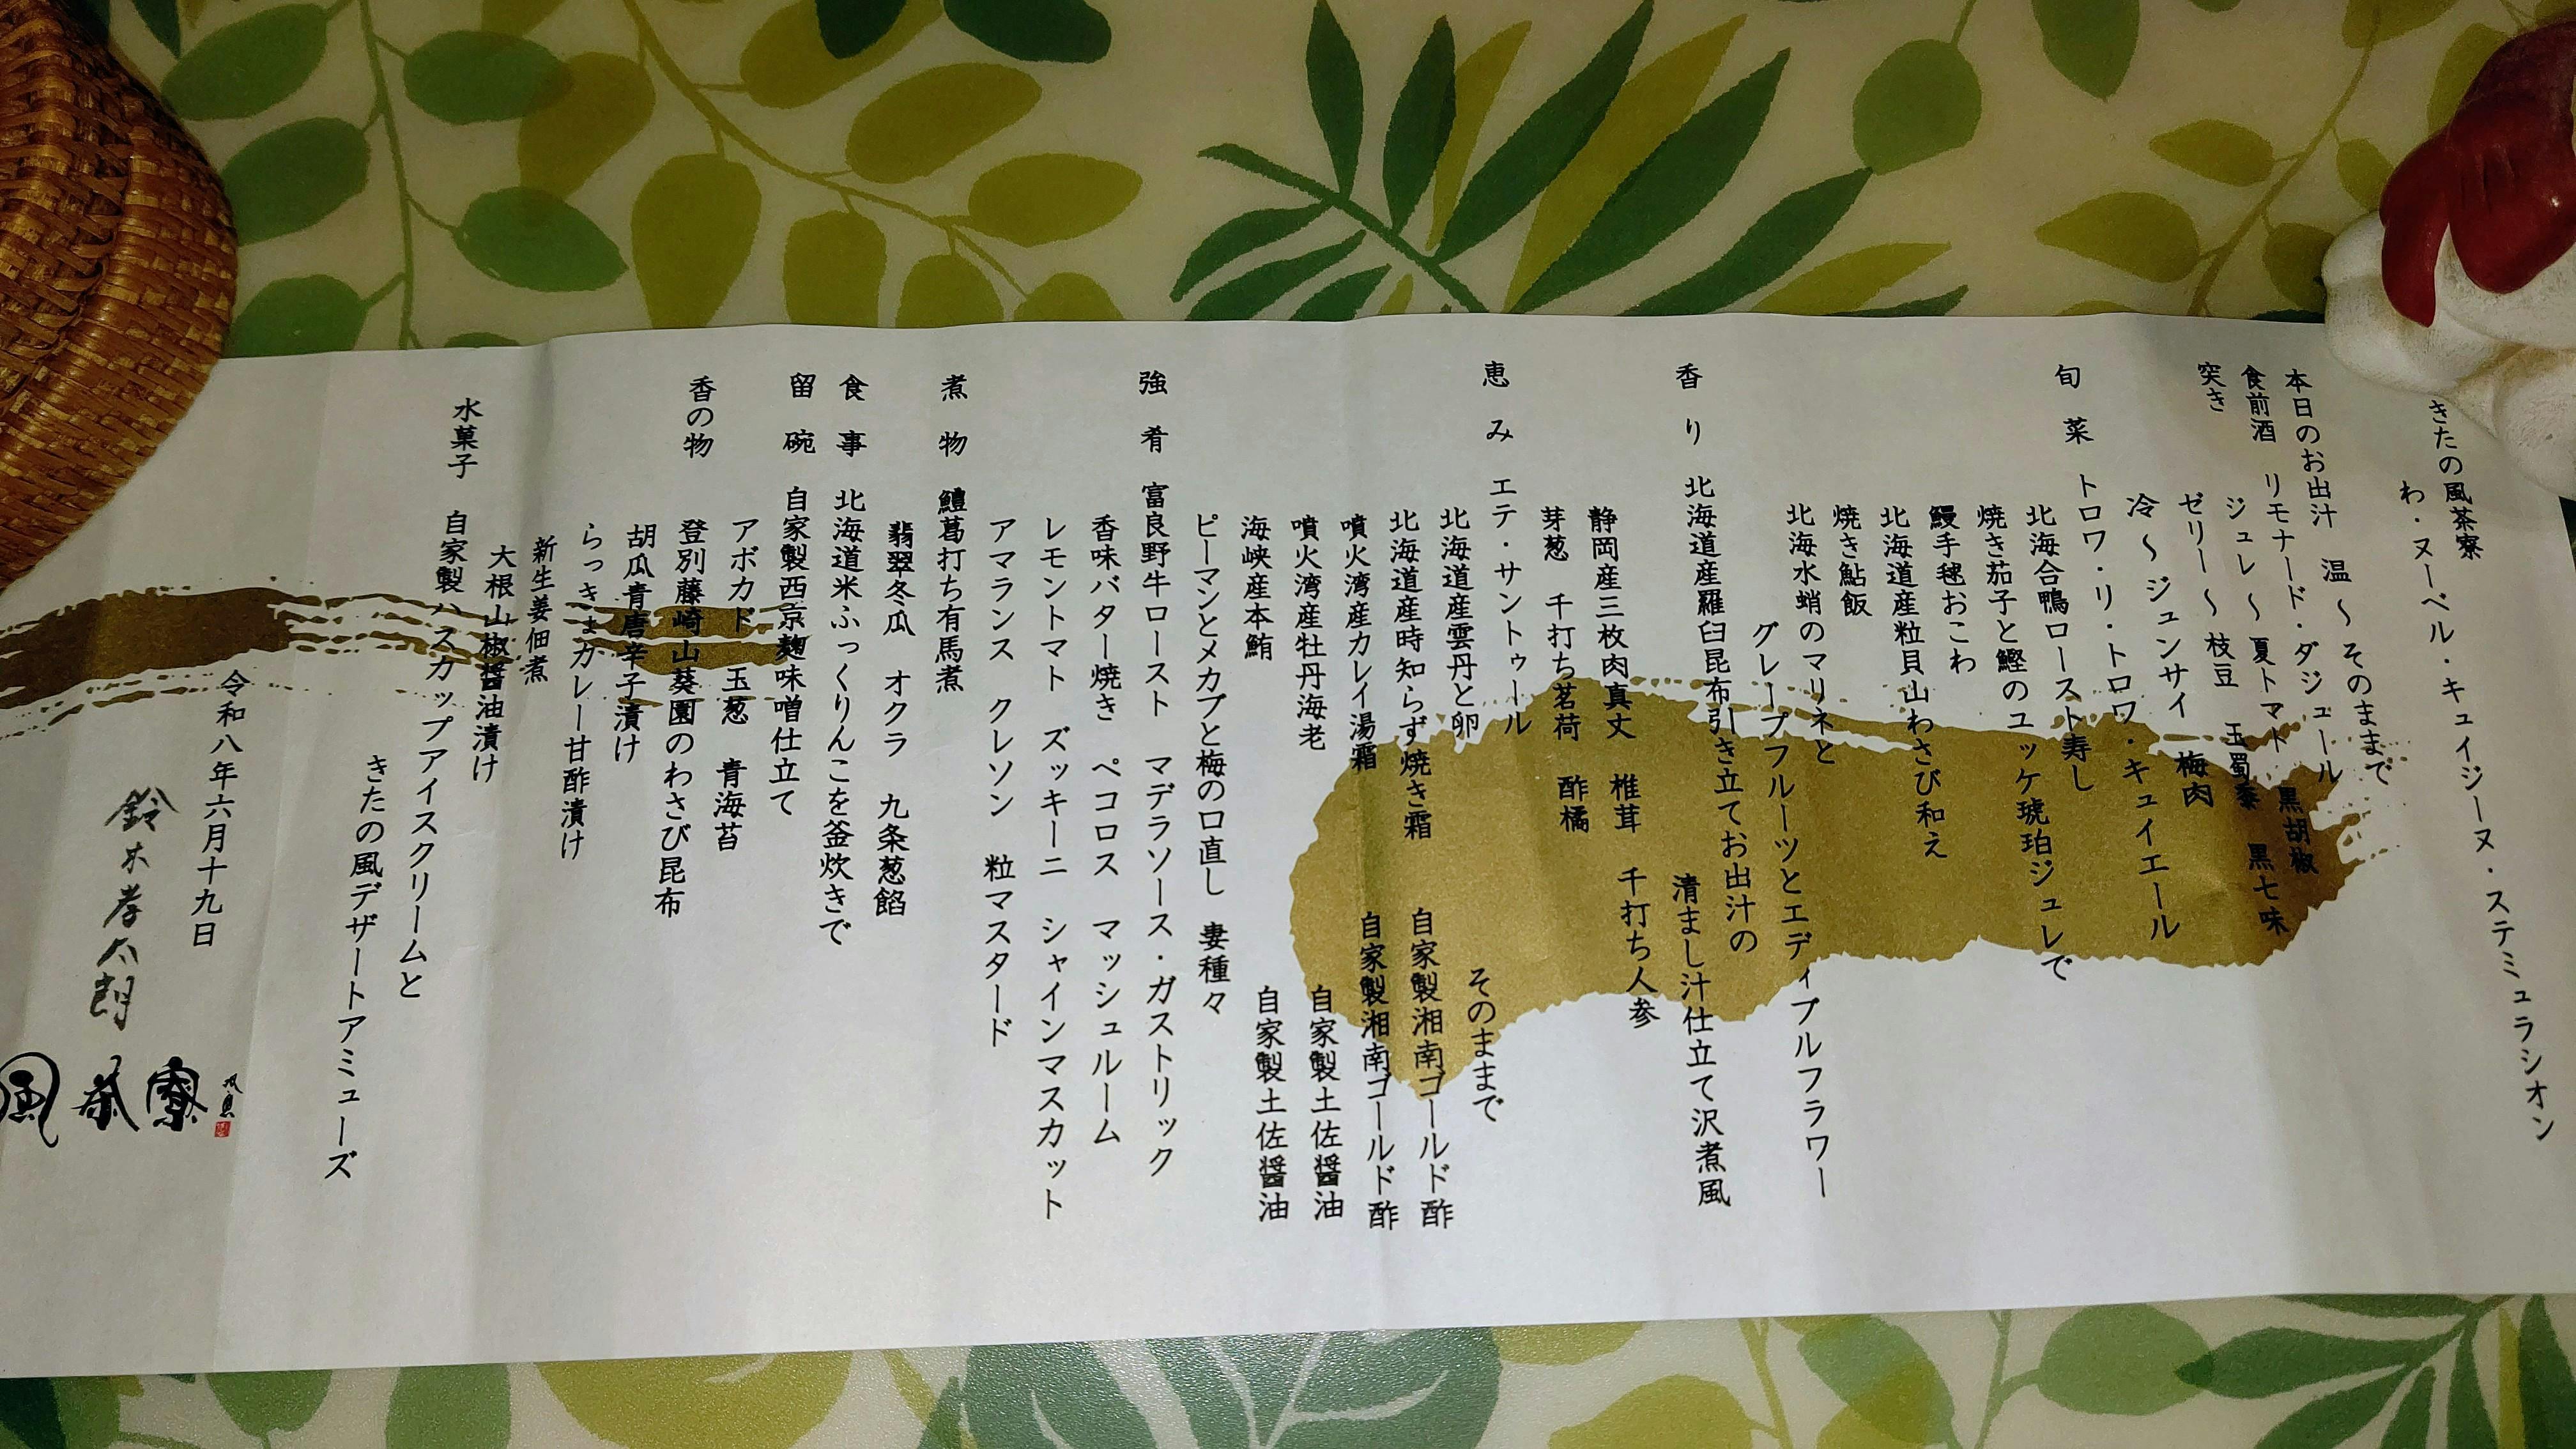 きたの風茶寮
わ・ヌーベル・キュイジーヌ・ステミュラシオン
本日のお出汁 温～そのままで
食前酒 リモナード・ダジュール
突き ジュレ～夏トマト 黒胡椒
ゼリー～枝豆 玉蜀黍 黒七味
冷～ジュンサイ 梅肉
旬菜 トロワ・リ・トロワ・キュイエール
北海合鴨ロースト寿し
焼き茄子と鰹のユッケ琥珀ジュレで
鰻手毬おこわ
北海道産粒貝山わさび和え
焼き鮎飯
北海水蛸のマリネと
グレープフルーツとエディブルフラワー
香り 北海道産羅臼昆布引き立てお出汁の
清まし汁仕立て沢煮風
静岡産三枚肉真丈 椎茸 千打ち人参
芽葱 千打ち茗荷 酢橘
恵み エテ・サントゥール
北海道産雲丹と卵 そのままで
北海道産時知らず焼き霜 自家製湘南ゴールド酢
噴火湾産カレイ湯霜 自家製湘南ゴールド酢
噴火湾産牡丹海老 自家製土佐醤油
海峡産本鮪 自家製土佐醤油
ピーマンとメカブと梅の口直し 妻種々
強肴 富良野牛ロースト マデラソース・ガストリック
香味バター焼き ペコロス マッシュルーム
レモントマト ズッキーニ シャインマスカット
アマランス クレソン 粒マスタード
煮物 鱧葛打ち有馬煮
翡翠冬瓜 オクラ 九条葱餡
食事 北海道米ふっくりんこを釜炊きで
留碗 自家製西京麹味噌仕立て
アボカド 玉葱 青海苔
香の物 登別藤崎山葵園のわさび昆布
胡瓜青唐辛子漬け
らっきょカレー甘酢漬け
新生姜佃煮
大根山椒醤油漬け
水菓子 自家製ハスカップアイスクリームと
きたの風デザートアミューズ
令和八年六月十九日
鈴木孝太朗
風茶寮